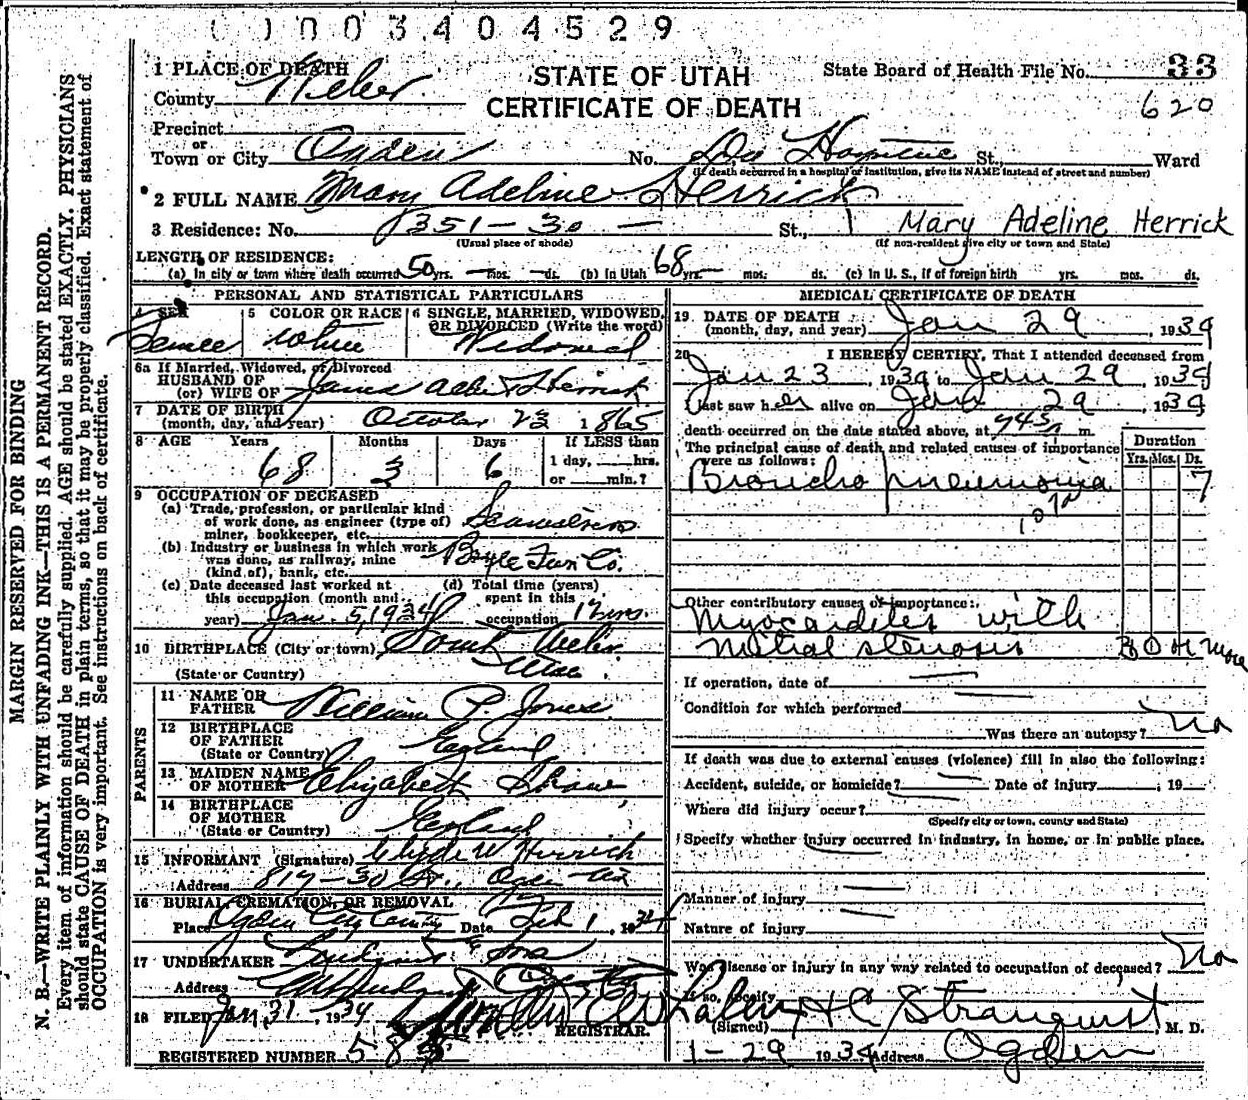 0003404529
1 PLACE OF DEATH
STATE OF UTAH
CERTIFICATE OF DEATH
State Board of Health File No. 33
620
County Weber
Precinct
or
Town or City Ogden No. Dee Hospital St., Ward
(If death occurred in a hospital or institution, give its NAME instead of street and number)
2 FULL NAME Mary Adeline Herrick
3 Residence: No. 351-30 St., Mary Adeline Herrick
(Usual place of abode) (If non-resident give city or town and State)
LENGTH OF RESIDENCE:
(a) In city or town where death occurred 50 yrs. — mos. — ds. (b) In Utah 68 yrs. — mos. ds. (c) In U. S., if of foreign birth yrs. mos. ds.
PERSONAL AND STATISTICAL PARTICULARS
4 SEX Female
5 COLOR OR RACE white
6 SINGLE, MARRIED, WIDOWED, OR DIVORCED (Write the word) Widowed
6a If Married, Widowed, or Divorced
HUSBAND OF
(or) WIFE OF James Albert Herrick
7 DATE OF BIRTH
(month, day, and year) October 23 1865
8 AGE Years Months Days If LESS than
68 3 6 1 day, hrs.
or min.?
9 OCCUPATION OF DECEASED
(a) Trade, profession, or particular kind
of work done, as engineer (type of)
miner, bookkeeper, etc. Seamstress
(b) Industry or business in which work
was done, as railway, mine
(kind of), bank, etc. Boyle Furn Co.
(c) Date deceased last worked at
this occupation (month and
year) Jan. 5, 1934
(d) Total time (years)
spent in this
occupation 12 yrs.
10 BIRTHPLACE (City or town) South Weber
(State or Country) Utah
PARENTS
11 NAME OF
FATHER William P. Jones
12 BIRTHPLACE
OF FATHER
(State or Country) England
13 MAIDEN NAME
OF MOTHER Elizabeth
14 BIRTHPLACE
OF MOTHER
(State or Country) England
15 INFORMANT (Signature) Clyde W Herrick
Address 817-30 St., Ogden Utah
16 BURIAL, CREMATION, OR REMOVAL
Place Ogden City Cemetery Date Feb 1, 1934
17 UNDERTAKER & Sons
Address
18 FILED Jan. 31, 1934
REGISTRAR.
REGISTERED NUMBER 58
MEDICAL CERTIFICATE OF DEATH
19 DATE OF DEATH
(month, day, and year) Jan 29, 1934
20 I HEREBY CERTIFY, That I attended deceased from
Jan 23, 1934 to Jan 29, 1934
I last saw her alive on Jan 29, 1934
death occurred on the date stated above, at 743 a m.
The principal cause of death and related causes of importance
were as follows:
Duration
Yrs. Mos. Ds.
Broncho pneumonia 7
107a
Other contributory causes of importance:
Myocarditis with
mitral stenosis
If operation, date of
Condition for which performed
Was there an autopsy? No
If death was due to external causes (violence) fill in also the following:
Accident, suicide, or homicide? Date of injury , 19
Where did injury occur?
(Specify city or town, county and State)
Specify whether injury occurred in industry, in home, or in public place.
Manner of injury
Nature of injury
Was disease or injury in any way related to occupation of deceased? No
If so, specify
(Signed) H C Stranquist M. D.
1-29 1934 Address Ogden
MARGIN RESERVED FOR BINDING
N. B.—WRITE PLAINLY WITH UNFADING INK—THIS IS A PERMANENT RECORD.
Every item of information should be carefully supplied. AGE should be stated EXACTLY. PHYSICIANS
should state CAUSE OF DEATH in plain terms, so that it may be properly classified. Exact statement of
OCCUPATION is very important. See instructions on back of certificate.